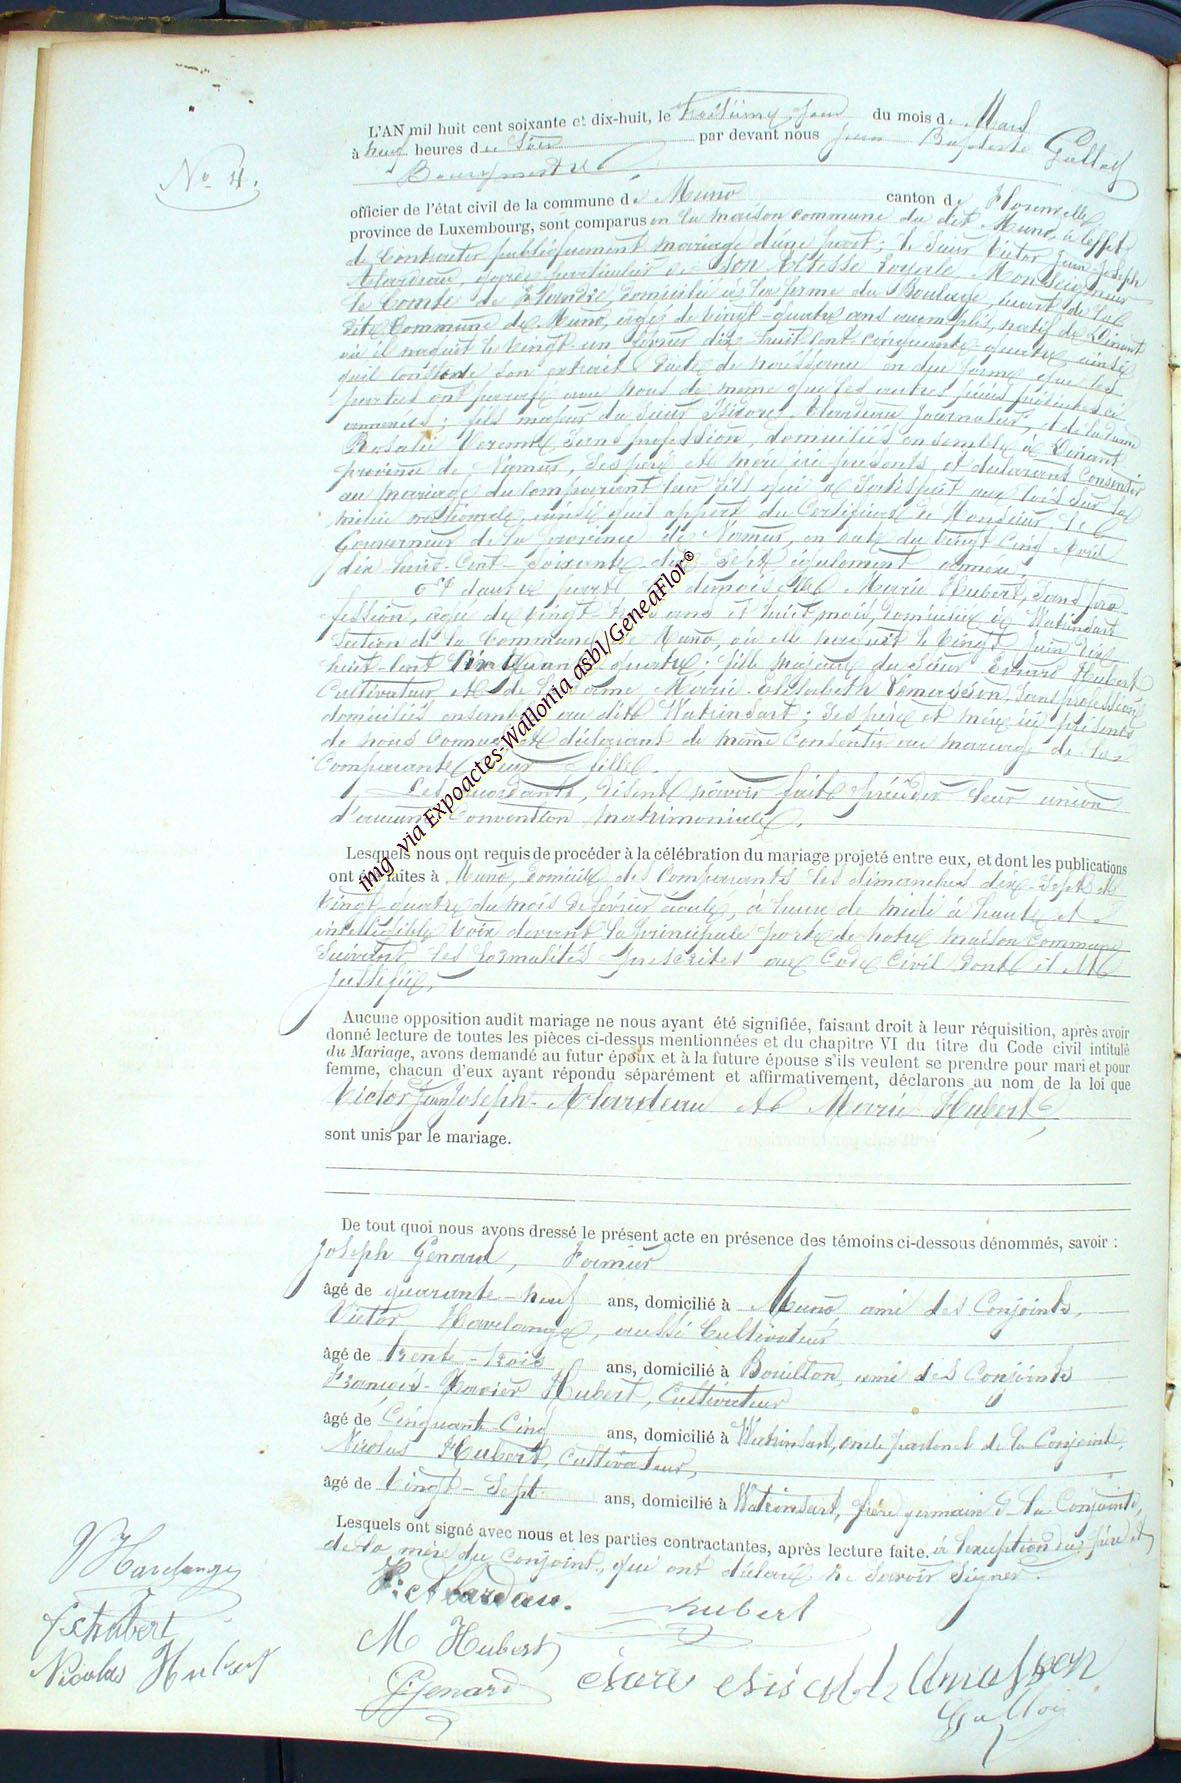 N° 4.
L'AN mil huit cent soixante et dix-huit, le troisième jour du mois de Mars
à neuf heures du Soir par devant nous Jean Baptiste Galloy
Bourgmestre
officier de l'état civil de la commune de Muno canton de Florenville
province de Luxembourg, sont comparus en la maison commune du dit Muno, à l'effet
de Contracter publiquement mariage d'une part; le Sieur Victor Jean Joseph
Alardeau, garde particulier de Son Altesse Royale Monseigneur
le Comte de Flandre, domicilié à la ferme du Boulage, écart de la
dite Commune de Muno, âgé de vingt-quatre ans accomplis, natif de Dinant
où il naquit le vingt un février dix huit cent cinquante quatre ainsi
qu'il conste de son extrait d'acte de naissance en due forme que les
parties ont parafé avec nous de même que les autres pièces produites ci
annexées; fils majeur du Sieur Isidore Alardeau Journalier, et de la Dame
Rosalie sans profession, domiciliés ensemble à Dinant
province de Namur, Ses père et mère ici présents, et déclarant Consentir
au mariage du Comparant leur fils qui a Satisfait aux lois Sur la
milice nationale, ainsi qu'il appert du Certificat de Monsieur le
Gouverneur de la province de Namur, en date du vingt Cinq Avril
dix huit Cent Soixante dix Sept également annexé.
Et d'autre part demoiselle Marie Hubert, Sans pro
fession, âgée de vingt ans et huit mois, domiciliée à Watrinsart
Section de la Commune de Muno, où elle naquit le vingt Juin dix
huit Cent Cinquante quatre; fille majeure du Sieur Evrard Hubert
Cultivateur et de la Dame Marie Elisabeth Lemasson, Sans profession
domiciliés ensemble au dit Watrinsart; Ses père et mère ici présents
de nous Connus et déclarant de même Consentir au mariage de la
Comparante leur fille.
Les disent n'avoir fait précéder leur union
d'aucune Convention matrimoniale.
Lesquels nous ont requis de procéder à la célébration du mariage projeté entre eux, et dont les publications
ont été faites à Muno, domicile des Comparants les dimanches dix-Sept et
vingt quatre du mois de février écoulé, à heure de midi à haute et
intelligible voix devant la principale porte de notre maison Commune
Suivant les formalités prescrites au Code Civil dont il est
justifié.
Aucune opposition audit mariage ne nous ayant été signifiée, faisant droit à leur réquisition, après avoir
donné lecture de toutes les pièces ci-dessus mentionnées et du chapitre VI du titre du Code civil intitulé
du Mariage, avons demandé au futur époux et à la future épouse s'ils veulent se prendre pour mari et pour
femme, chacun d'eux ayant répondu séparément et affirmativement, déclarons au nom de la loi que
Victor Jean Joseph Alardeau et Marie Hubert
sont unis par le mariage.
De tout quoi nous avons dressé le présent acte en présence des témoins ci-dessous dénommés, savoir :
Joseph Genard, Fermier
âgé de quarante-neuf ans, domicilié à Muno ami des Conjoints,
Victor Havelange, aussi Cultivateur
âgé de trente-trois ans, domicilié à Bouillon, ami des Conjoints
François-Xavier Hubert, Cultivateur
âgé de Cinquante Cinq ans, domicilié à Watrinsart, oncle paternel de la Conjointe,
Nicolas Hubert, Cultivateur,
âgé de vingt-Sept ans, domicilié à Watrinsart, frère germain de la Conjointe,
Lesquels ont signé avec nous et les parties contractantes, après lecture faite. à l'exception des père et
de la mère du Conjoint, qui ont déclaré ne Savoir Signer.
V. Alardeau.
Hubert
V Havelange
M Hubert
Fx hubert
Nicolas Hubert
J. Genard
Lemasson
Galloy
img via Expoactes-Wallonia asbl/GeneaFlor®